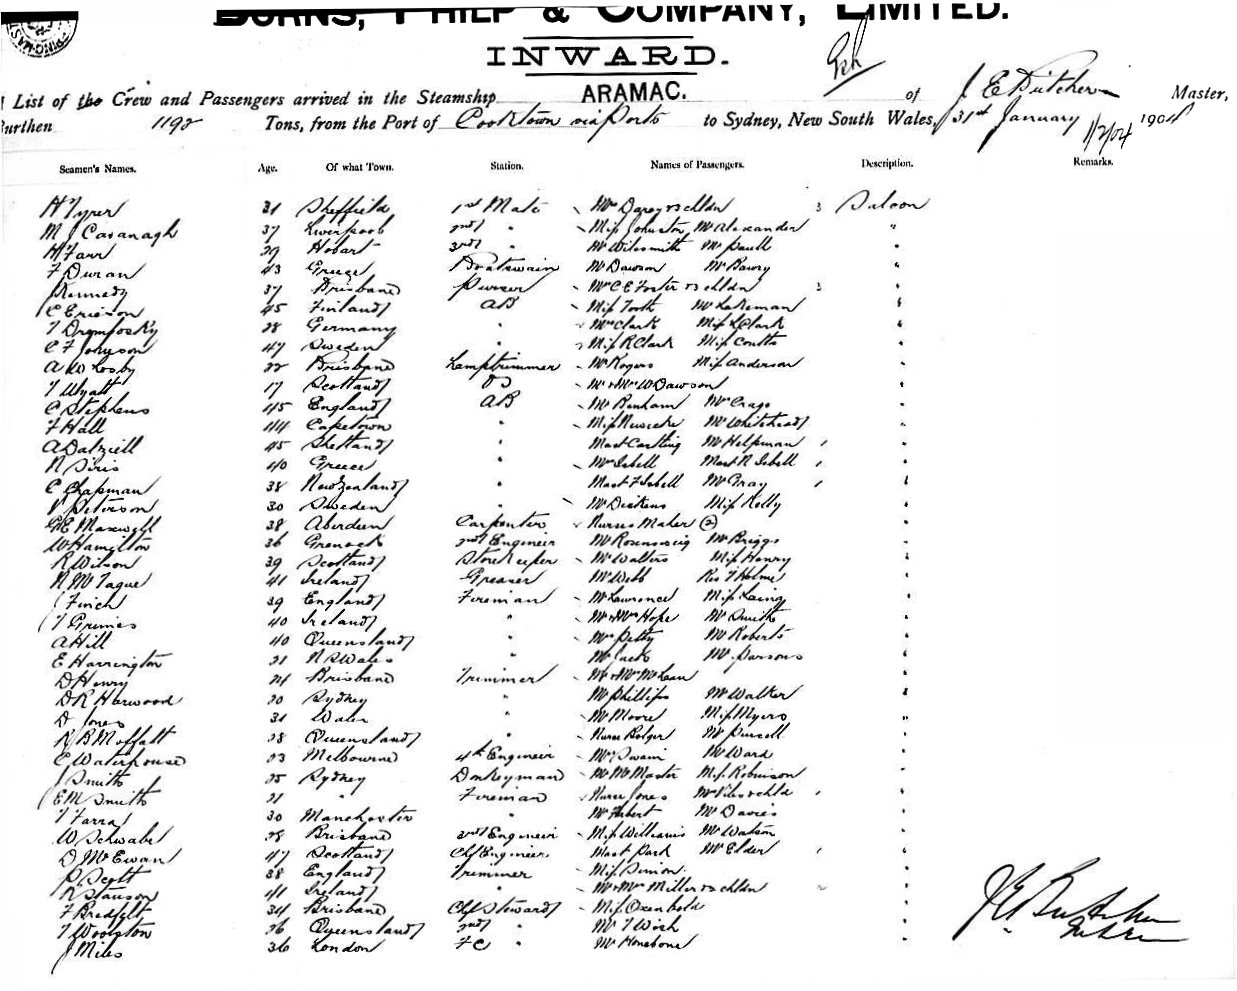 BURNS, PHILP & COMPANY, LIMITED.
INWARD.
List of the Crew and Passengers arrived in the Steamship ARAMAC. of J. E. Butcher Master,
Burthen 1192 Tons, from the Port of Cooktown via Ports to Sydney, New South Wales, 31st January 1904 1/2/04
Seamen's Names. Age. Of what Town. Station. Names of Passengers. Description. Remarks.
H Tyrer 31 Sheffield 1st Mate Mrs Darcy & 3 chldn 3 Saloon
M J Cavanagh 37 Liverpool 2nd " Miss Johnston Mr Alexander "
H Farr 29 Hobart 3rd " Mr Wilesmith Mr Paull "
F Duran 43 Greece Boatswain Mr Dawson Mr Bawry "
J Kennedy 37 Brisbane Purser Mrs C E Foster & chldn 3 "
C Ericson 45 Finland AB Miss Tooth Mr Lakeman "
T Dromfosky 28 Germany " Mrs Clark Miss L Clark "
C F Johnson 47 Sweden " Miss R Clark Miss Coutts "
A W Losby 22 Brisbane Lamptrimmer Mr Rogers Miss Anderson "
T Wyatt 17 Scotland OS Mr & Mrs W Dawson "
C Stephens 45 England AB Mr Benham Mr Crago "
F Hall 44 Capetown " Mr Whitehead "
A Dalziell 45 Shetland " Mast Carlling Mr Helpman "
N Siris 40 Greece " Mrs Isbell Mast N Isbell "
C Chapman 38 New Zealand " Mast F Isbell Mr Gray "
P Peterson 30 Sweden " Mr Dickens Miss Kelly "
G E Maxwell 38 Aberdeen Carpenter Nurses Maher (2) "
W Hamilton 36 Greenock 2nd Engineer Mr Rosenweig Mr Briggs "
R Wilson 39 Scotland Storekeeper Mr Walters Miss Henry "
N McTague 41 Ireland Greaser Mr Webb Rev T Holme "
J Finch 39 England Fireman Mr Lawrence Miss Laing "
T Grimes 40 Ireland " Mr & Mrs Hope Mr Smith "
A Hill 40 Queensland " Mrs Petty Mr Roberts "
E Harrington 21 N S Wales " Mr Jack Mr Parsons "
D Henry 24 Brisbane Trimmer Mr & Mrs McLean "
D R Harwood 20 Sydney " Mr Phillips Mr Walker "
D Jones 31 Wales " Mr Moore Miss Myers "
R B Moffatt 28 Queensland " Nurse Bolger Mr Pursell "
C Waterhouse 23 Melbourne 4th Engineer Mrs Swain Mr Ward "
J Smith 25 Sydney Donkeyman Mr McMaster Miss Robinson "
E M Smith 21 " Fireman Nurse Jones Mrs Viles & chld "
T Farra 30 Manchester " Mr Hubert Mr Davies "
W Schwabe 28 Brisbane 3rd Engineer Miss Williams Mr Watson "
D McEwan 47 Scotland Chf Engineer Mast Park Mr Elder "
P Scott 38 England Trimmer Miss Simon "
R Stanson 41 Ireland " Mr & Mrs Miller & 2 chldn "
F Bredfelt 34 Brisbane Chf Steward Miss Oxenbold "
T Woonton 26 Queensland 2nd " Mr T Wish "
J Miles 36 London FC " Mr Honebone "
J E Butcher